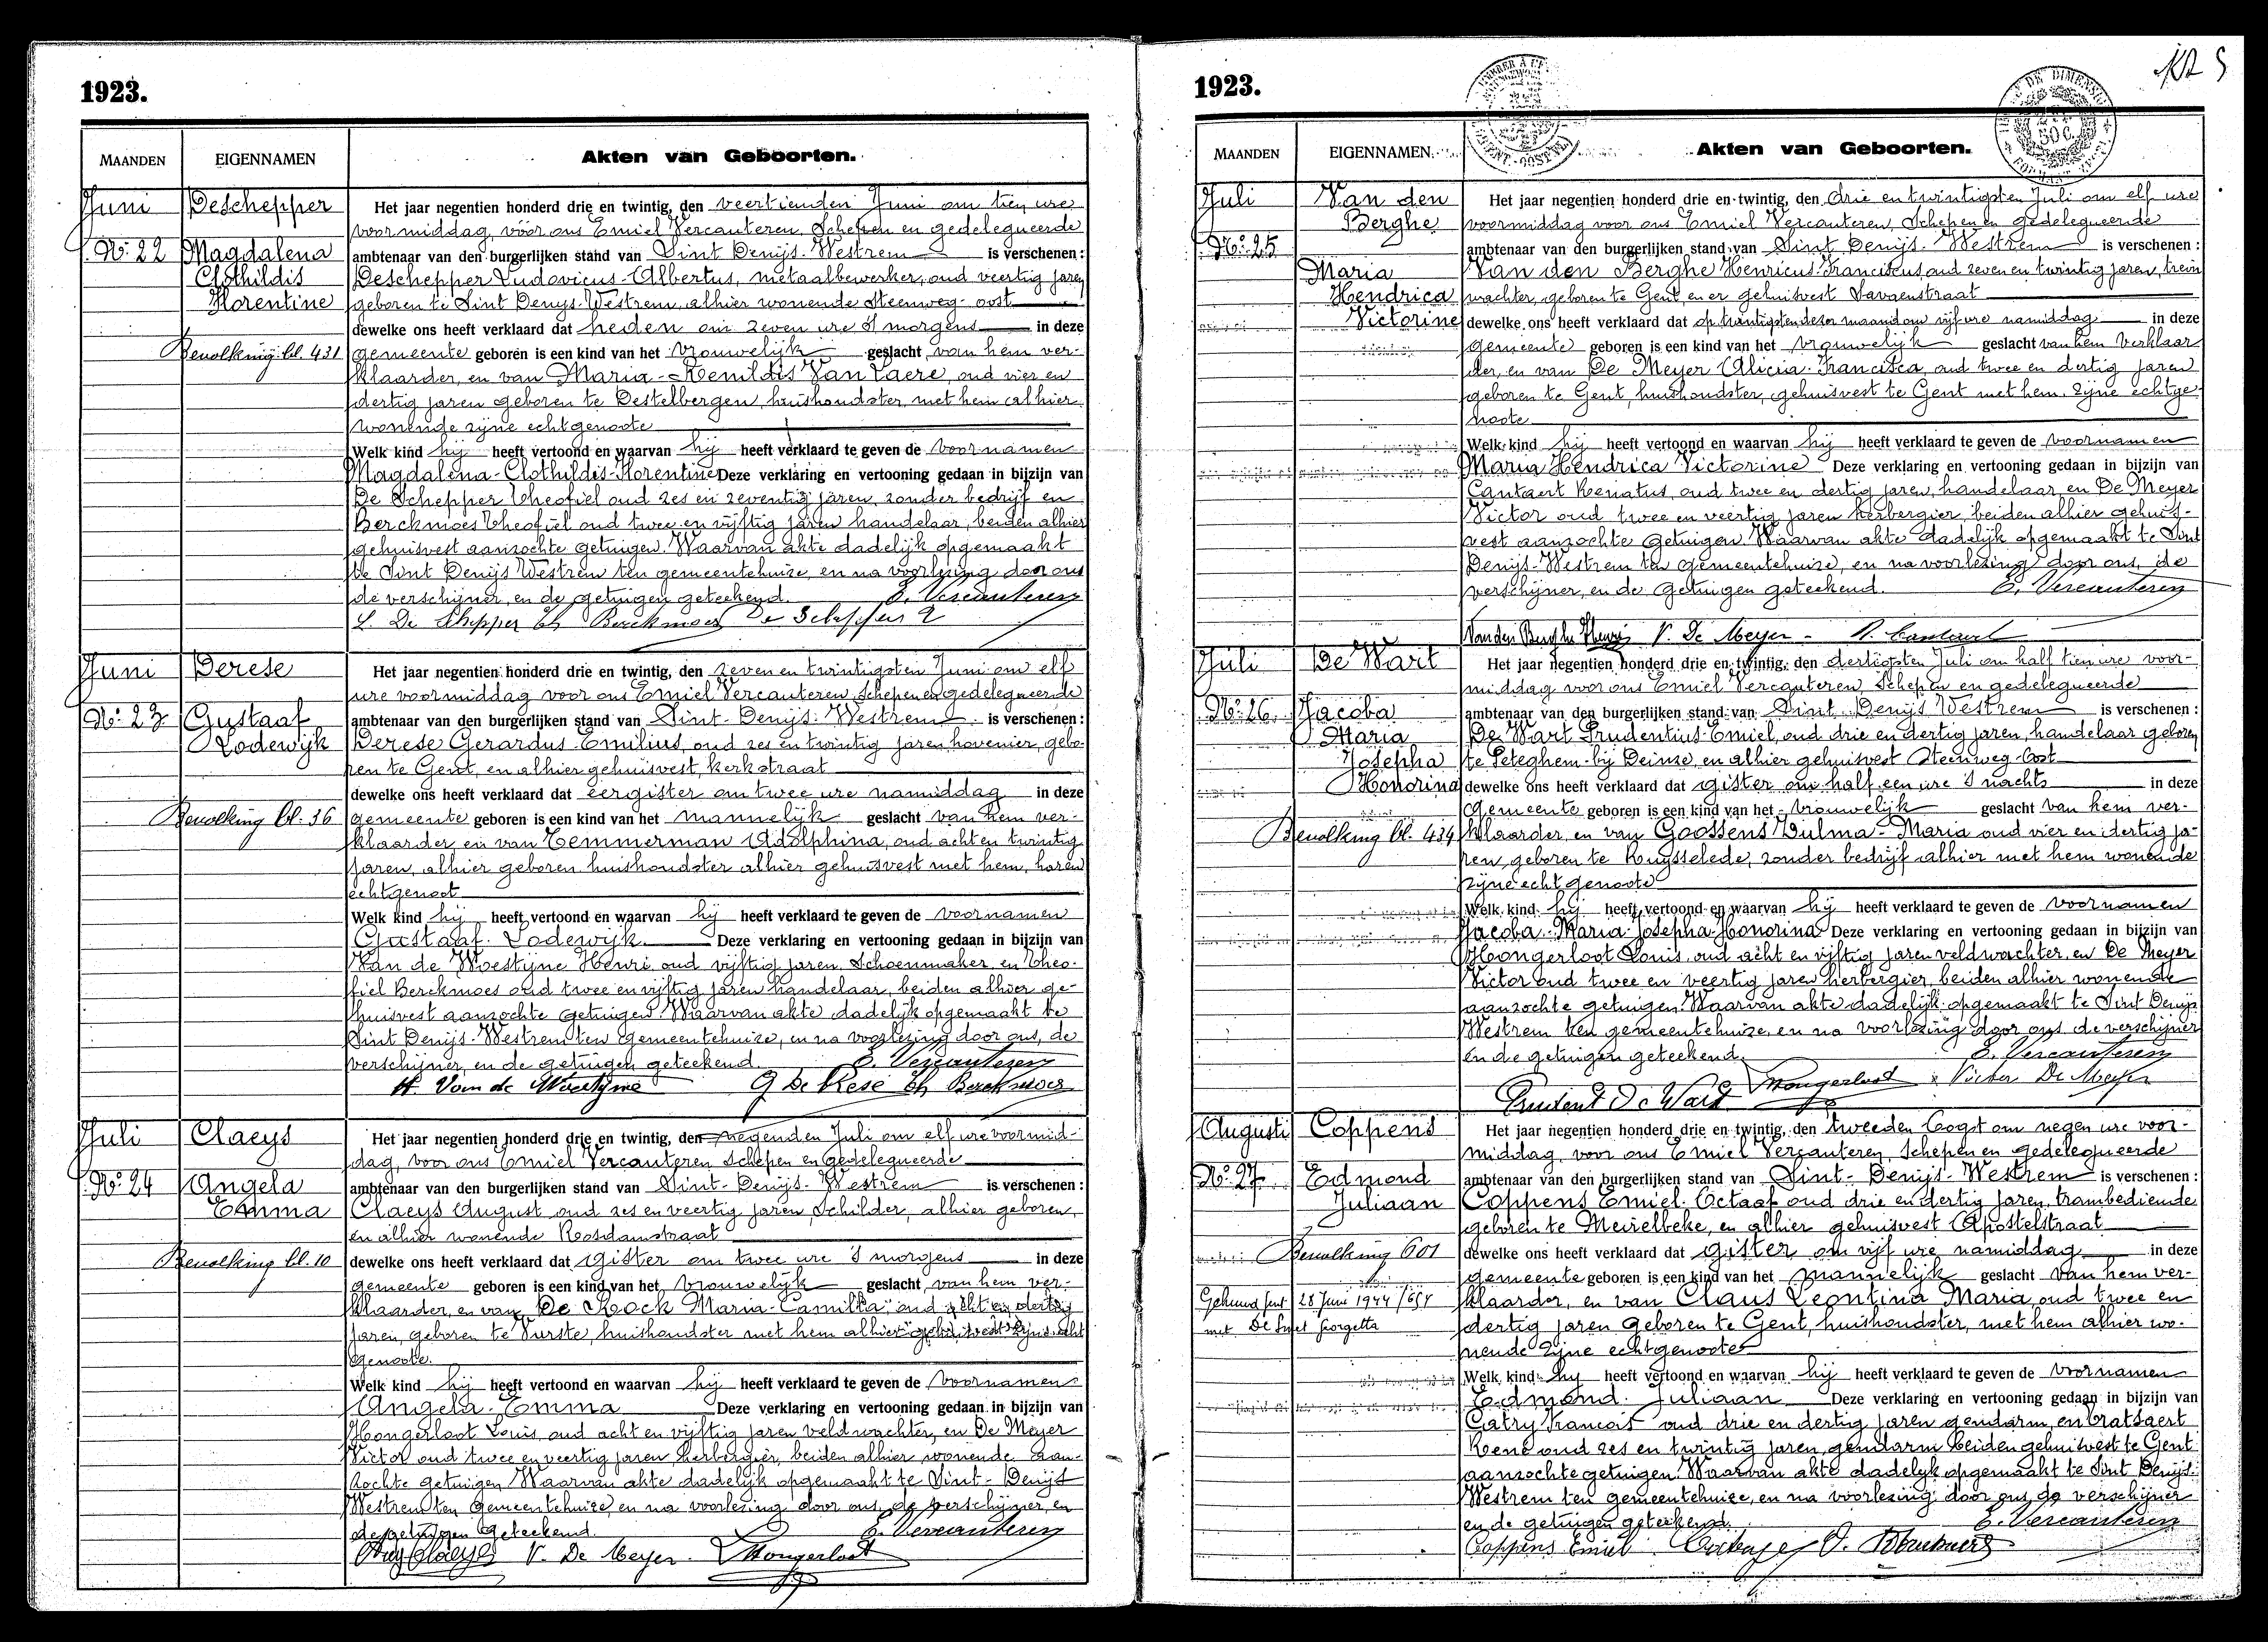 1923.
MAANDEN EIGENNAMEN Akten van Geboorten.
Juni Deschepper Het jaar negentien honderd drie en twintig, den veertienden Juni om tien ure
voormiddag, vóór ons Emiel Vercauteren, Schepen en gedelegueerde
No. 22 Magdalena ambtenaar van den burgerlijken stand van Sint Denijs-Westrem is verschenen:
Clothildis Deschepper Ludovicus-Albertus, metaalbewerker, oud veertig jaren
Florentine geboren te Sint Denys-Westrem, alhier wonende Steenweg-oost
dewelke ons heeft verklaard dat heden om zeven ure 's morgens in deze
Bevolking bl. 431 gemeente geboren is een kind van het vrouwelijk geslacht van hem ver-
klaarder, en van Maria-Renildis Van Laere, oud vier en
dertig jaren geboren te Destelbergen, huishoudster, met hem alhier
wonende zijne echtgenoote
Welk kind hij heeft vertoond en waarvan hij heeft verklaard te geven de voornamen
Magdalena-Clothildis-Florentine Deze verklaring en vertooning gedaan in bijzijn van
De Schepper Theofiel oud zes en zeventig jaren, zonder bedrijf en
Berckmoes Theofiel oud twee en vijftig jaren handelaar, beiden alhier
gehuisvest aanzochte getuigen. Waarvan akte dadelijk opgemaakt
te Sint Denijs Westrem ten gemeentehuize, en na voorlezing door ons
de verschijner, en de getuigen geteekend. E. Vercauteren
L. De Schepper Th Berckmoes De Schepper
Juni Derese Het jaar negentien honderd drie en twintig, den zeven en twintigsten Juni om elf
ure voormiddag voor ons Emiel Vercauteren, Schepen en gedelegueerde
No. 23 Gustaaf ambtenaar van den burgerlijken stand van Sint-Denijs-Westrem is verschenen:
Lodewijk Derese Gerardus-Emilius, oud zes en twintig jaren hovenier, gebo-
ren te Gent, en alhier gehuisvest, kerkstraat
dewelke ons heeft verklaard dat eergister om twee ure namiddag in deze
Bevolking bl. 36 gemeente geboren is een kind van het mannelijk geslacht van hem ver-
klaarder, en van Temmerman Adolphina, oud acht en twintig
jaren, alhier geboren huishoudster alhier gehuisvest met hem, haren
echtgenoot
Welk kind hij heeft vertoond en waarvan hij heeft verklaard te geven de voornamen
Gustaaf-Lodewijk Deze verklaring en vertooning gedaan in bijzijn van
Van de Woestijne Henri oud vijftig jaren Schoenmaker en Theo-
fiel Berckmoes oud twee en vijftig jaren handelaar, beiden alhier ge-
huisvest aanzochte getuigen. Waarvan akte dadelijk opgemaakt te
Sint Denijs-Westrem ten gemeentehuize, en na voorlezing door ons, de
verschijner, en de getuigen geteekend. E. Vercauteren
H. Van de Woestyne G De Rese Th Berckmoes
Juli Claeys Het jaar negentien honderd drie en twintig, den negenden Juli om elf ure voormid-
dag, voor ons Emiel Vercauteren Schepen en Gedelegueerde
No. 24 Angela ambtenaar van den burgerlijken stand van Sint-Denijs-Westrem is verschenen:
Emma Claeys August oud zes en veertig jaren, Schilder, alhier geboren,
en alhier wonende Rosdamstraat
Bevolking bl. 10 dewelke ons heeft verklaard dat gister om twee ure 's morgens in deze
gemeente geboren is een kind van het vrouwelijk geslacht van hem ver-
klaarder, en van De Rock Maria-Camilla oud acht en dertig
jaren, geboren te Vurste, huishoudster met hem alhier gehuisvest zijne echt
genoote.
Welk kind hij heeft vertoond en waarvan hij heeft verklaard te geven de voornamen
Angela-Emma Deze verklaring en vertooning gedaan in bijzijn van
Hongerloot Louis, oud acht en vijftig jaren veldwachter, en De Meyer
Victor oud twee en veertig jaren, herbergier, beiden alhier wonende aan-
zochte getuigen. Waarvan akte dadelijk opgemaakt te Sint-Denijs
Westrem ten gemeentehuize, en na voorlezing door ons, de verschijner, en
de getuigen geteekend. E. Vercauteren
Aug Claeys V. De Meyer. Hongerloot
1923.
MAANDEN EIGENNAMEN Akten van Geboorten.
Juli Van den Het jaar negentien honderd drie en twintig, den drie en twintigsten Juli om elf ure
Berghe voormiddag voor ons Emiel Vercauteren, Schepen en gedelegueerde
No. 25 ambtenaar van den burgerlijken stand van Sint Denijs-Westrem is verschenen:
Maria Van den Berghe Henricus-Franciscus, oud zeven en twintig jaren, trein
Hendrica wachter, geboren te Gent, en er gehuisvest Savaenstraat
Victorine dewelke ons heeft verklaard dat op twintigsten dezer maand om vijf ure namiddag in deze
gemeente geboren is een kind van het vrouwelijk geslacht van hem verklaar
der, en van De Meyer Alicia-Francisca, oud twee en dertig jaren
geboren te Gent, huishoudster, gehuisvest te Gent met hem. zijne echtge-
noote
Welk kind hij heeft vertoond en waarvan hij heeft verklaard te geven de voornamen
Maria Hendrica Victorine Deze verklaring en vertooning gedaan in bijzijn van
Cantaert Renatus, oud twee en dertig jaren, handelaar, en De Meyer
Victor oud twee en veertig jaren herbergier, beiden alhier gehuis-
vest aanzochte getuigen. Waarvan akte dadelijk opgemaakt te Sint
Denijs-Westrem ten gemeentehuize, en na voorlezing door ons, de
verschijner, en de getuigen geteekend. E. Vercauteren
Van den Berghe Henri V. De Meyer R. Cantaert
Juli De Wart Het jaar negentien honderd drie en twintig, den dertigsten Juli om half tien ure voor-
middag voor ons Emiel Vercauteren, Schepen en gedelegueerde
No. 26. Jacoba ambtenaar van den burgerlijken stand van Sint Denijs Westrem is verschenen:
Maria De Wart Prudentius-Emiel, oud drie en dertig jaren, handelaar geboren
Josepha te Peteghem-bij Deinze, en alhier gehuisvest Steenweg-Oost
Honorina dewelke ons heeft verklaard dat gister om half een ure 's nachts in deze
gemeente geboren is een kind van het vrouwelijk geslacht van hem ver-
Bevolking bl. 434 klaarder, en van Goossens Wulma-Maria oud vier en dertig ja-
ren, geboren te Ruysselede, zonder bedrijf alhier met hem wonende
zijne echtgenoote
Welk kind hij heeft vertoond en waarvan hij heeft verklaard te geven de voornamen
Jacoba-Maria-Josepha-Honorina Deze verklaring en vertooning gedaan in bijzijn van
Hongerloot Louis, oud acht en vijftig jaren veldwachter, en De Meyer
Victor oud twee en veertig jaren herbergier, beiden alhier wonende
aanzochte getuigen. Waarvan akte dadelijk opgemaakt te Sint Denijs
Westrem ten gemeentehuize, en na voorlezing door ons de verschijner
en de getuigen geteekend. E. Vercauteren
Prudent De Wart Hongerloot Victor De Meyer
Augusti Coppens Het jaar negentien honderd drie en twintig, den tweeden Oogst om negen ure voor-
middag, voor ons Emiel Vercauteren, Schepen en gedelegueerde
No. 27. Edmond ambtenaar van den burgerlijken stand van Sint-Denijs-Westrem is verschenen:
Juliaan Coppens Emiel-Octaaf oud drie en dertig jaren, trambediende
geboren te Meirelbeke, en alhier gehuisvest Apostelstraat
Bevolking 601 dewelke ons heeft verklaard dat gister om vijf ure namiddag in deze
gemeente geboren is een kind van het mannelijk geslacht van hem ver-
Gehuwd Gent 28 Juni 1944 klaarder, en van Claus Leontina Maria, oud twee en
met De Smet Georgetta dertig jaren geboren te Gent, huishoudster, met hem alhier wo-
nende zijne echtgenoote
Welk kind hij heeft vertoond en waarvan hij heeft verklaard te geven de voornamen
Edmond-Juliaan Deze verklaring en vertooning gedaan in bijzijn van
Catry Francois oud drie en dertig jaren gendarm, en Tratsaert
René oud zes en twintig jaren, gendarm beiden gehuisvest te Gent
aanzochte getuigen. Waarvan akte dadelyk opgemaakt te Sint Denijs-
Westrem ten gemeentehuize, en na voorlezing door ons, de verschijner
en de getuigen geteekend. E. Vercauteren
Coppens Emiel